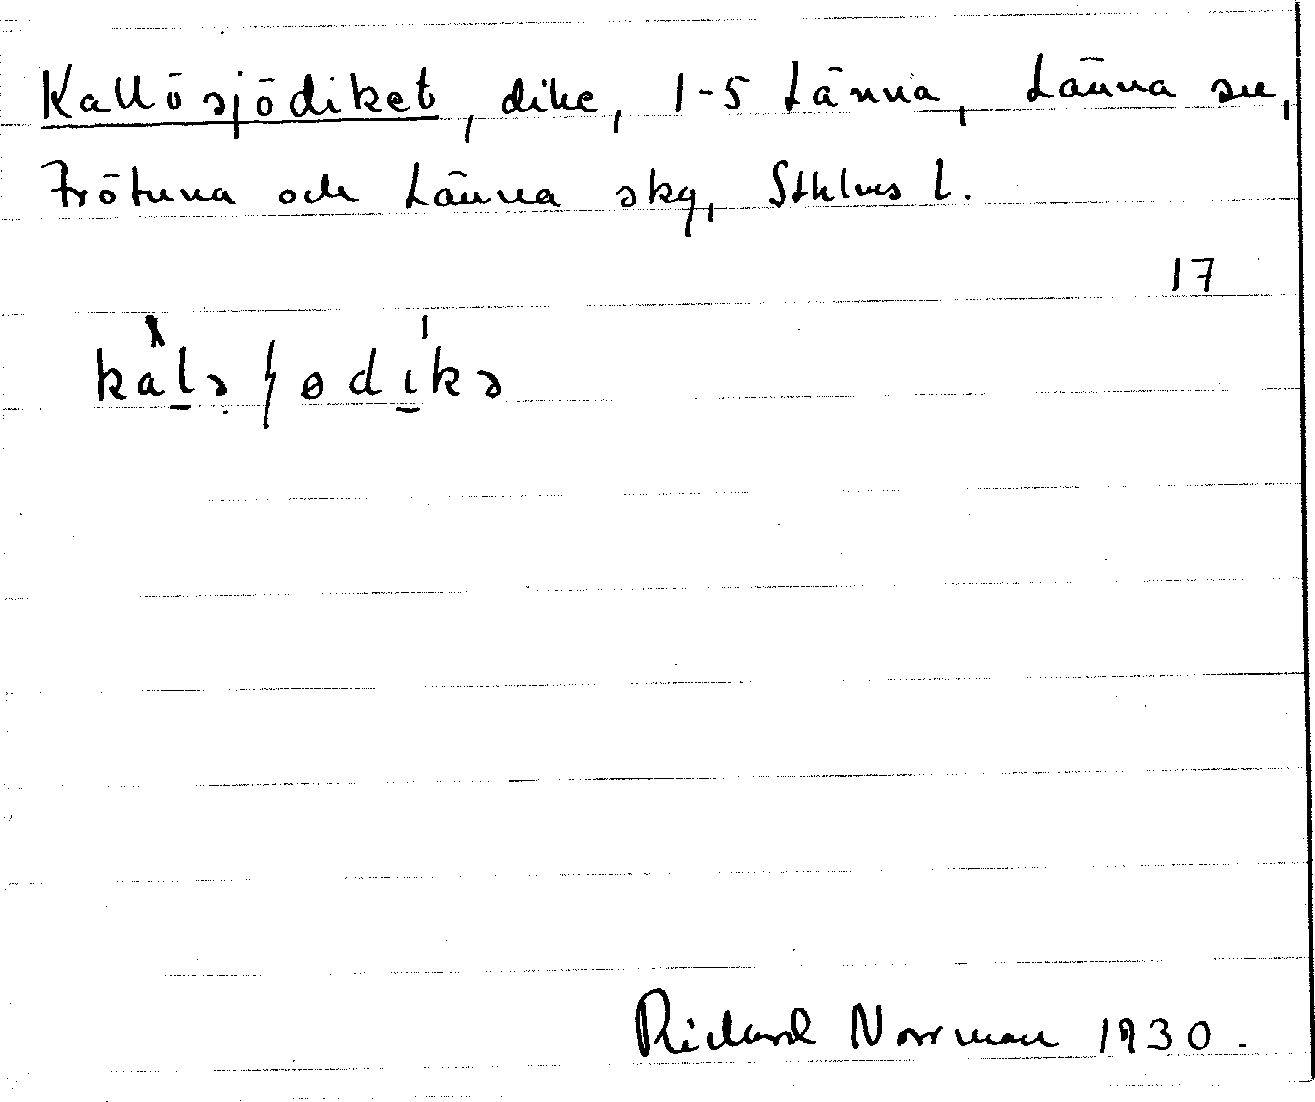 Kallösjödiket, dike, 1-5 Länna, Länna sn,
Frötuna och Länna skg, Sthlms l.
17
Rickard Norrman 1930.